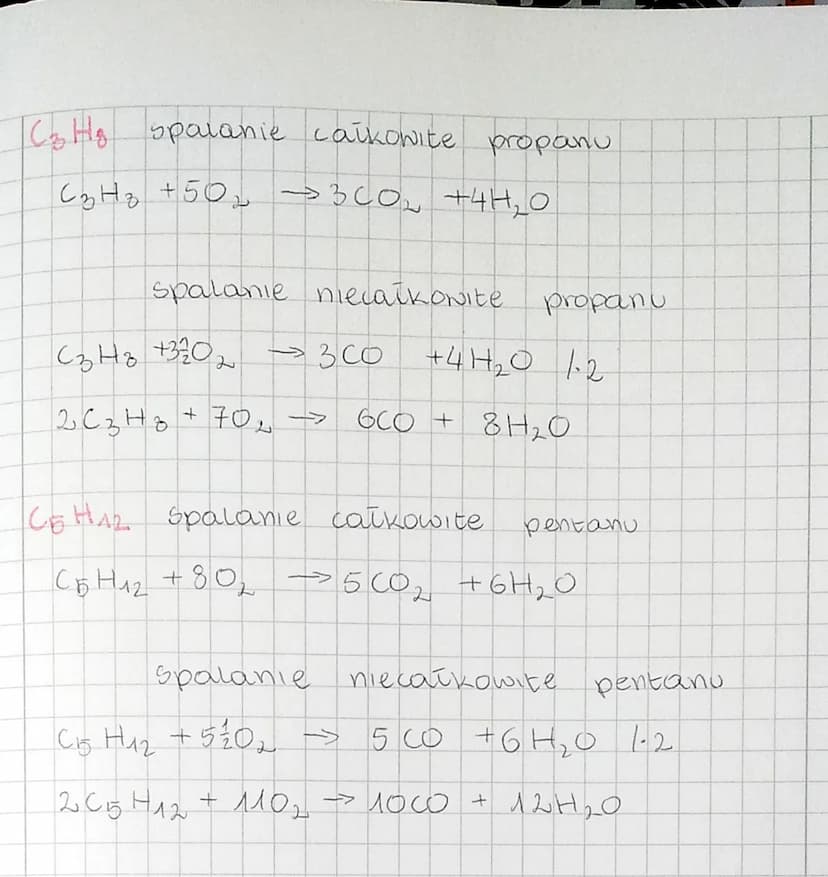 C₃H₈ spalanie całkowite propanu
C₃H₈ +5O₂ → 3CO₂ +4H₂O
spalanie niecałkowite propanu
C₃H₈ +3½O₂ → 3CO +4H₂O /·2
2C₃H₈ + 7O₂ → 6CO + 8H₂O
C₅H₁₂ spalanie całkowite pentanu
C₅H₁₂ +8O₂ → 5CO₂ +6H₂O
spalanie niecałkowite pentanu
C₅H₁₂ +5½O₂ → 5CO +6H₂O /·2
2C₅H₁₂ + 11O₂ → 10CO + 12H₂O